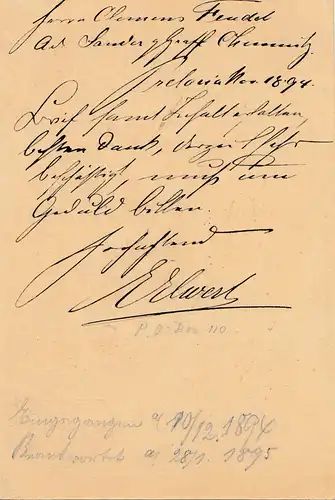 Herrn Clemens Feudel
Ad. Sander Chemnitz.
Pretoria Nov 18.94.
Brief samt Inhalt erhalten,
besten Dank, derzeit sehr
beschäftigt, muß um
Geduld bitten.
Hochachtend
Elwert
P.O. Box 110
Eingegangen a/ 10/12. 1894
Beantwortet a/ 28/1. 1895